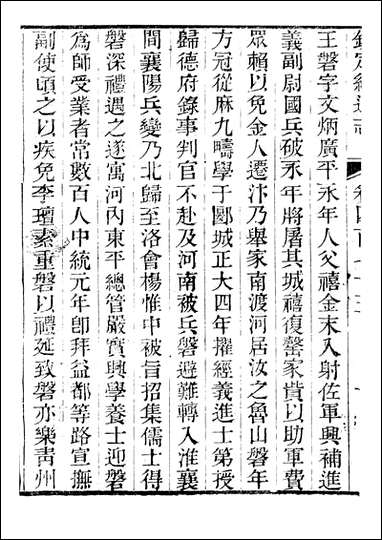 欽定續通志
王磐字文炳廣平永年人父禧金末入財佐軍興補進
義副尉國兵破永年將屠其城禧復罄家貲以助軍費
眾賴以免金人遷汴乃舉家南渡河居汝之魯山磐年
方冠從麻九疇學于郾城正大四年擢經義進士第授
歸德府錄事判官不赴及河南被兵磐避難轉入淮襄
間襄陽兵變乃北歸至洛會楊惟中被旨招集儒士得
磐深禮遇之遂寓河內東平總管嚴實興學養士迎磐
爲師受業者常數百人中統元年卽拜益都等路宣撫
副使頃之以疾免李璮素重磐以禮延致磐亦樂青州